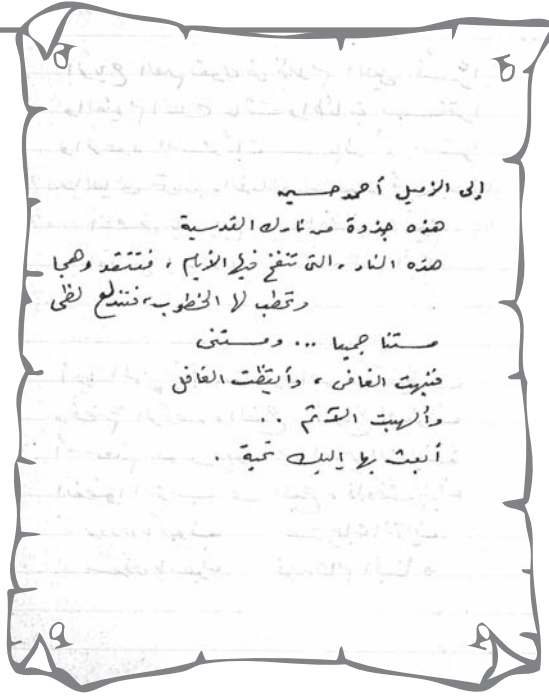 إلى الزميل أحمد حسين
هذه جذوة من نارك القدسية
هذه النار ، التى تنفخ فيها الأيام ، فتتقد وهجا
وتحطب لها الخطوب ، فتندلع لظى
مستنا جميعا ... ومستنى
فنبهت الغافى ، وأيقظت الغافل
وألهبت الآثم ..
أبعث بها إليك تحية .